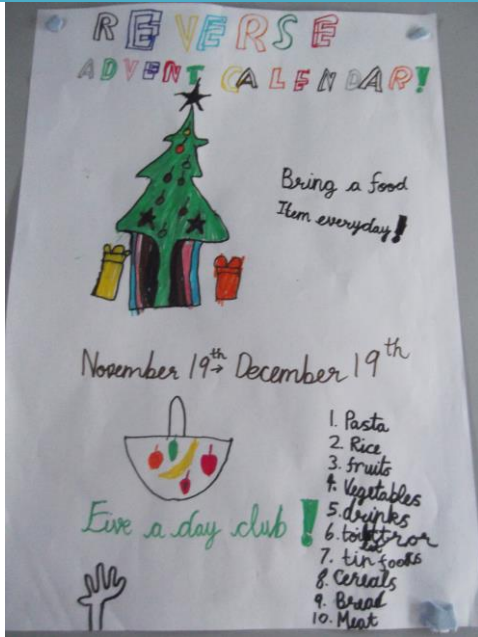 REVERSE
ADVENT CALENDAR!
Bring a food
Item everyday!
November 19th → December 19th
Five a day club!
1. Pasta
2. Rice
3. fruits
4. Vegetables
5. drinks
6.
7. tin foods
8. Cereals
9. Bread
10. Meat